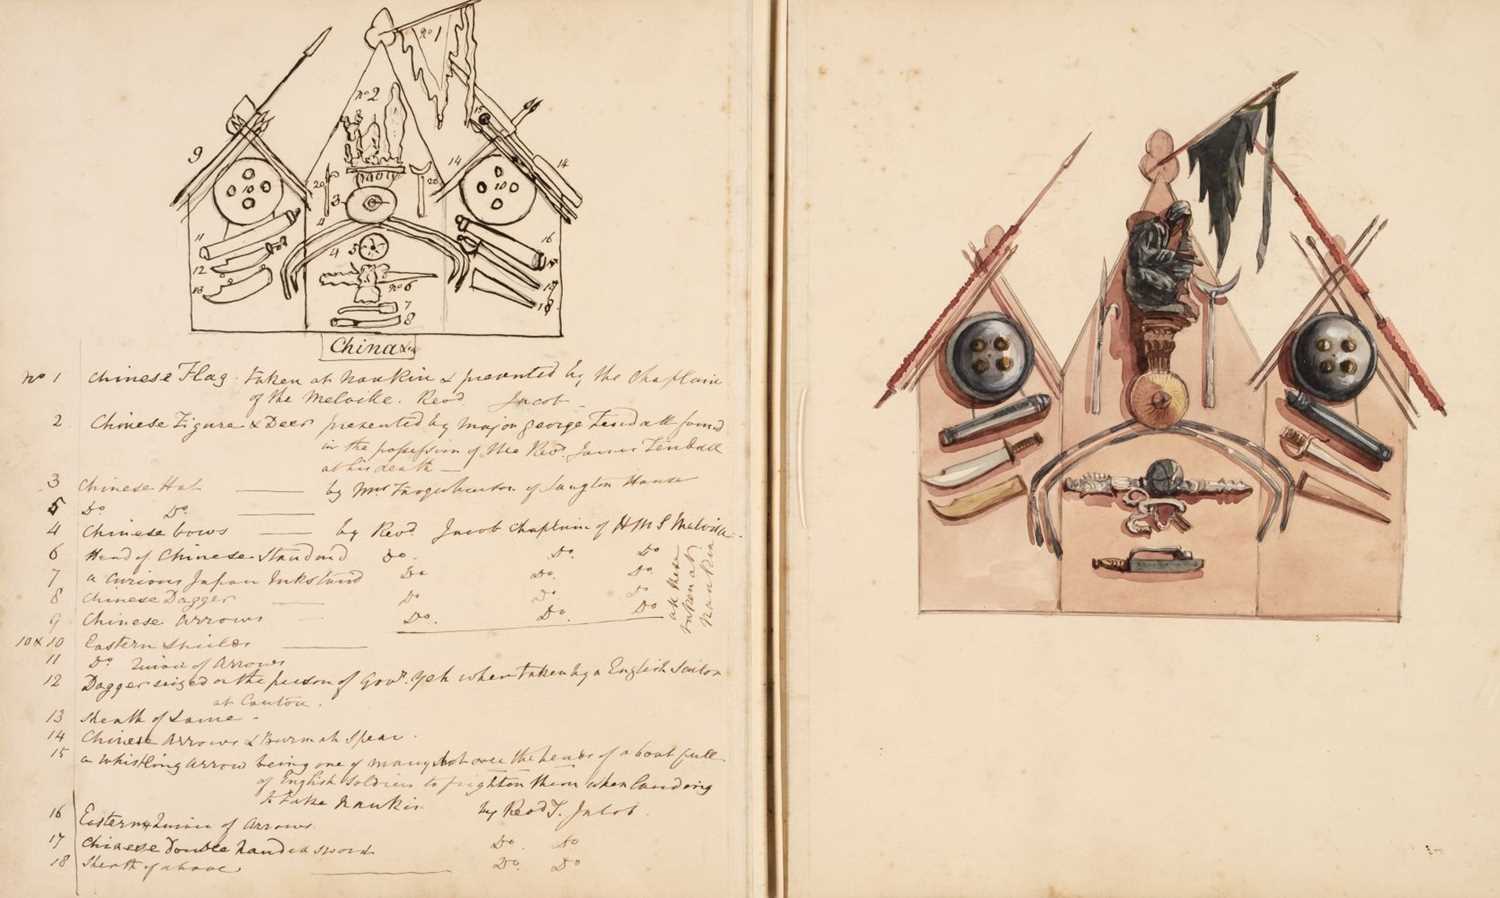 No 1
No 2
3
4
4
5
No 6
7
8
9
10
10
11
12
13
14
14
15
16
18
20
20
China &c
No 1 Chinese Flag - taken at Nankin & presented by the Chaplain
of the Melville. Revd Jacob
2 Chinese Figure & Deer presented by Major George Tindall found
in the possession of the Revd. James Tindall
at his death —
3 Chinese Hat — by Mrs of Langton House
5 Do Do —
4 Chinese bows — by Revd. Jacob Chaplain of HMS Melville
6 Head of Chinese Standard Do. Do. Do
7 a Curious Japan Inkstand Do Do. Do.
8 Chinese Dagger — Do Do. Do
9 Chinese Arrows — Do. Do. Do
all these
taken at
Nankin
10 & 10 Eastern Shields —
11 Do of Arrows
12 Dagger seized on the person of Govr. Yeh when taken by a English Sailor
at Canton.
13 Sheath of Same -
14 Chinese Arrows & Burmah Spear.
15 a Whistling Arrow being one of many shot over the heads of a boat full
of English Soldiers to frighten them when landing
to take Nankin by Revd J. Jacob.
16 Eastern of Arrows.
17 Chinese Double handed sword Do. Do
18 Sheath of above — Do Do